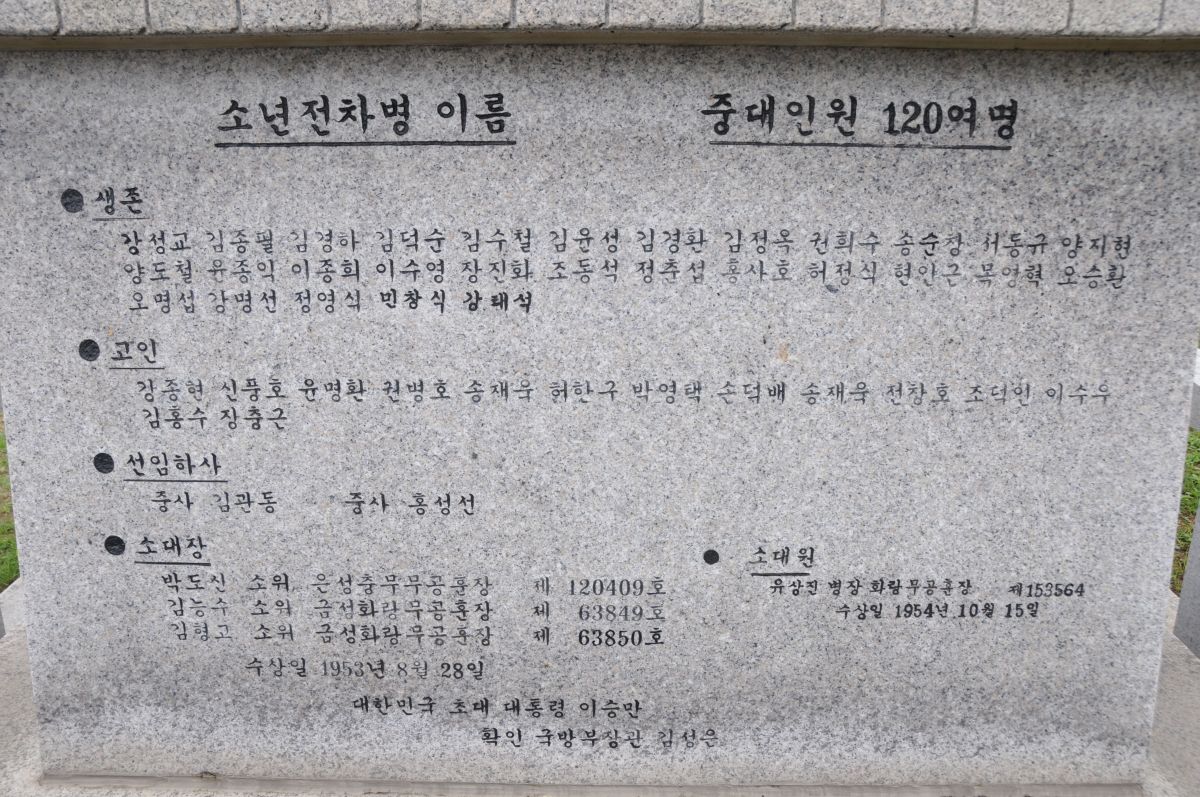 소년전차병 이름
중대인원 120여명
● 생존
강성교 김종필 김경하 김덕순 김수철 김윤성 김경환 김정옥 권희수 송순창 서동규 양지현
양도철 윤종익 이종희 이수영 장진화 조동석 정춘섭 홍사호 허정식 현안근 목영혁 오승환
오명섭 강명선 정영식 민창식 강태석
● 고인
강종현 신풍호 윤명환 권병호 송재욱 허한구 박영택 손덕배 송재욱 전창호 조덕인 이수우
김홍수 장충근
● 선임하사
중사 김관동 중사 홍성선
● 소대장
박도신 소위 은성충무무공훈장 제 120409호
김능수 소위 금성화랑무공훈장 제 63849호
김형고 소위 금성화랑무공훈장 제 63850호
수상일 1953년 8월 28일
● 소대원
유상진 병장 화랑무공훈장 제153564
수상일 1954년 10월 15일
대한민국 초대 대통령 이승만
확인 국방부장관 김성은